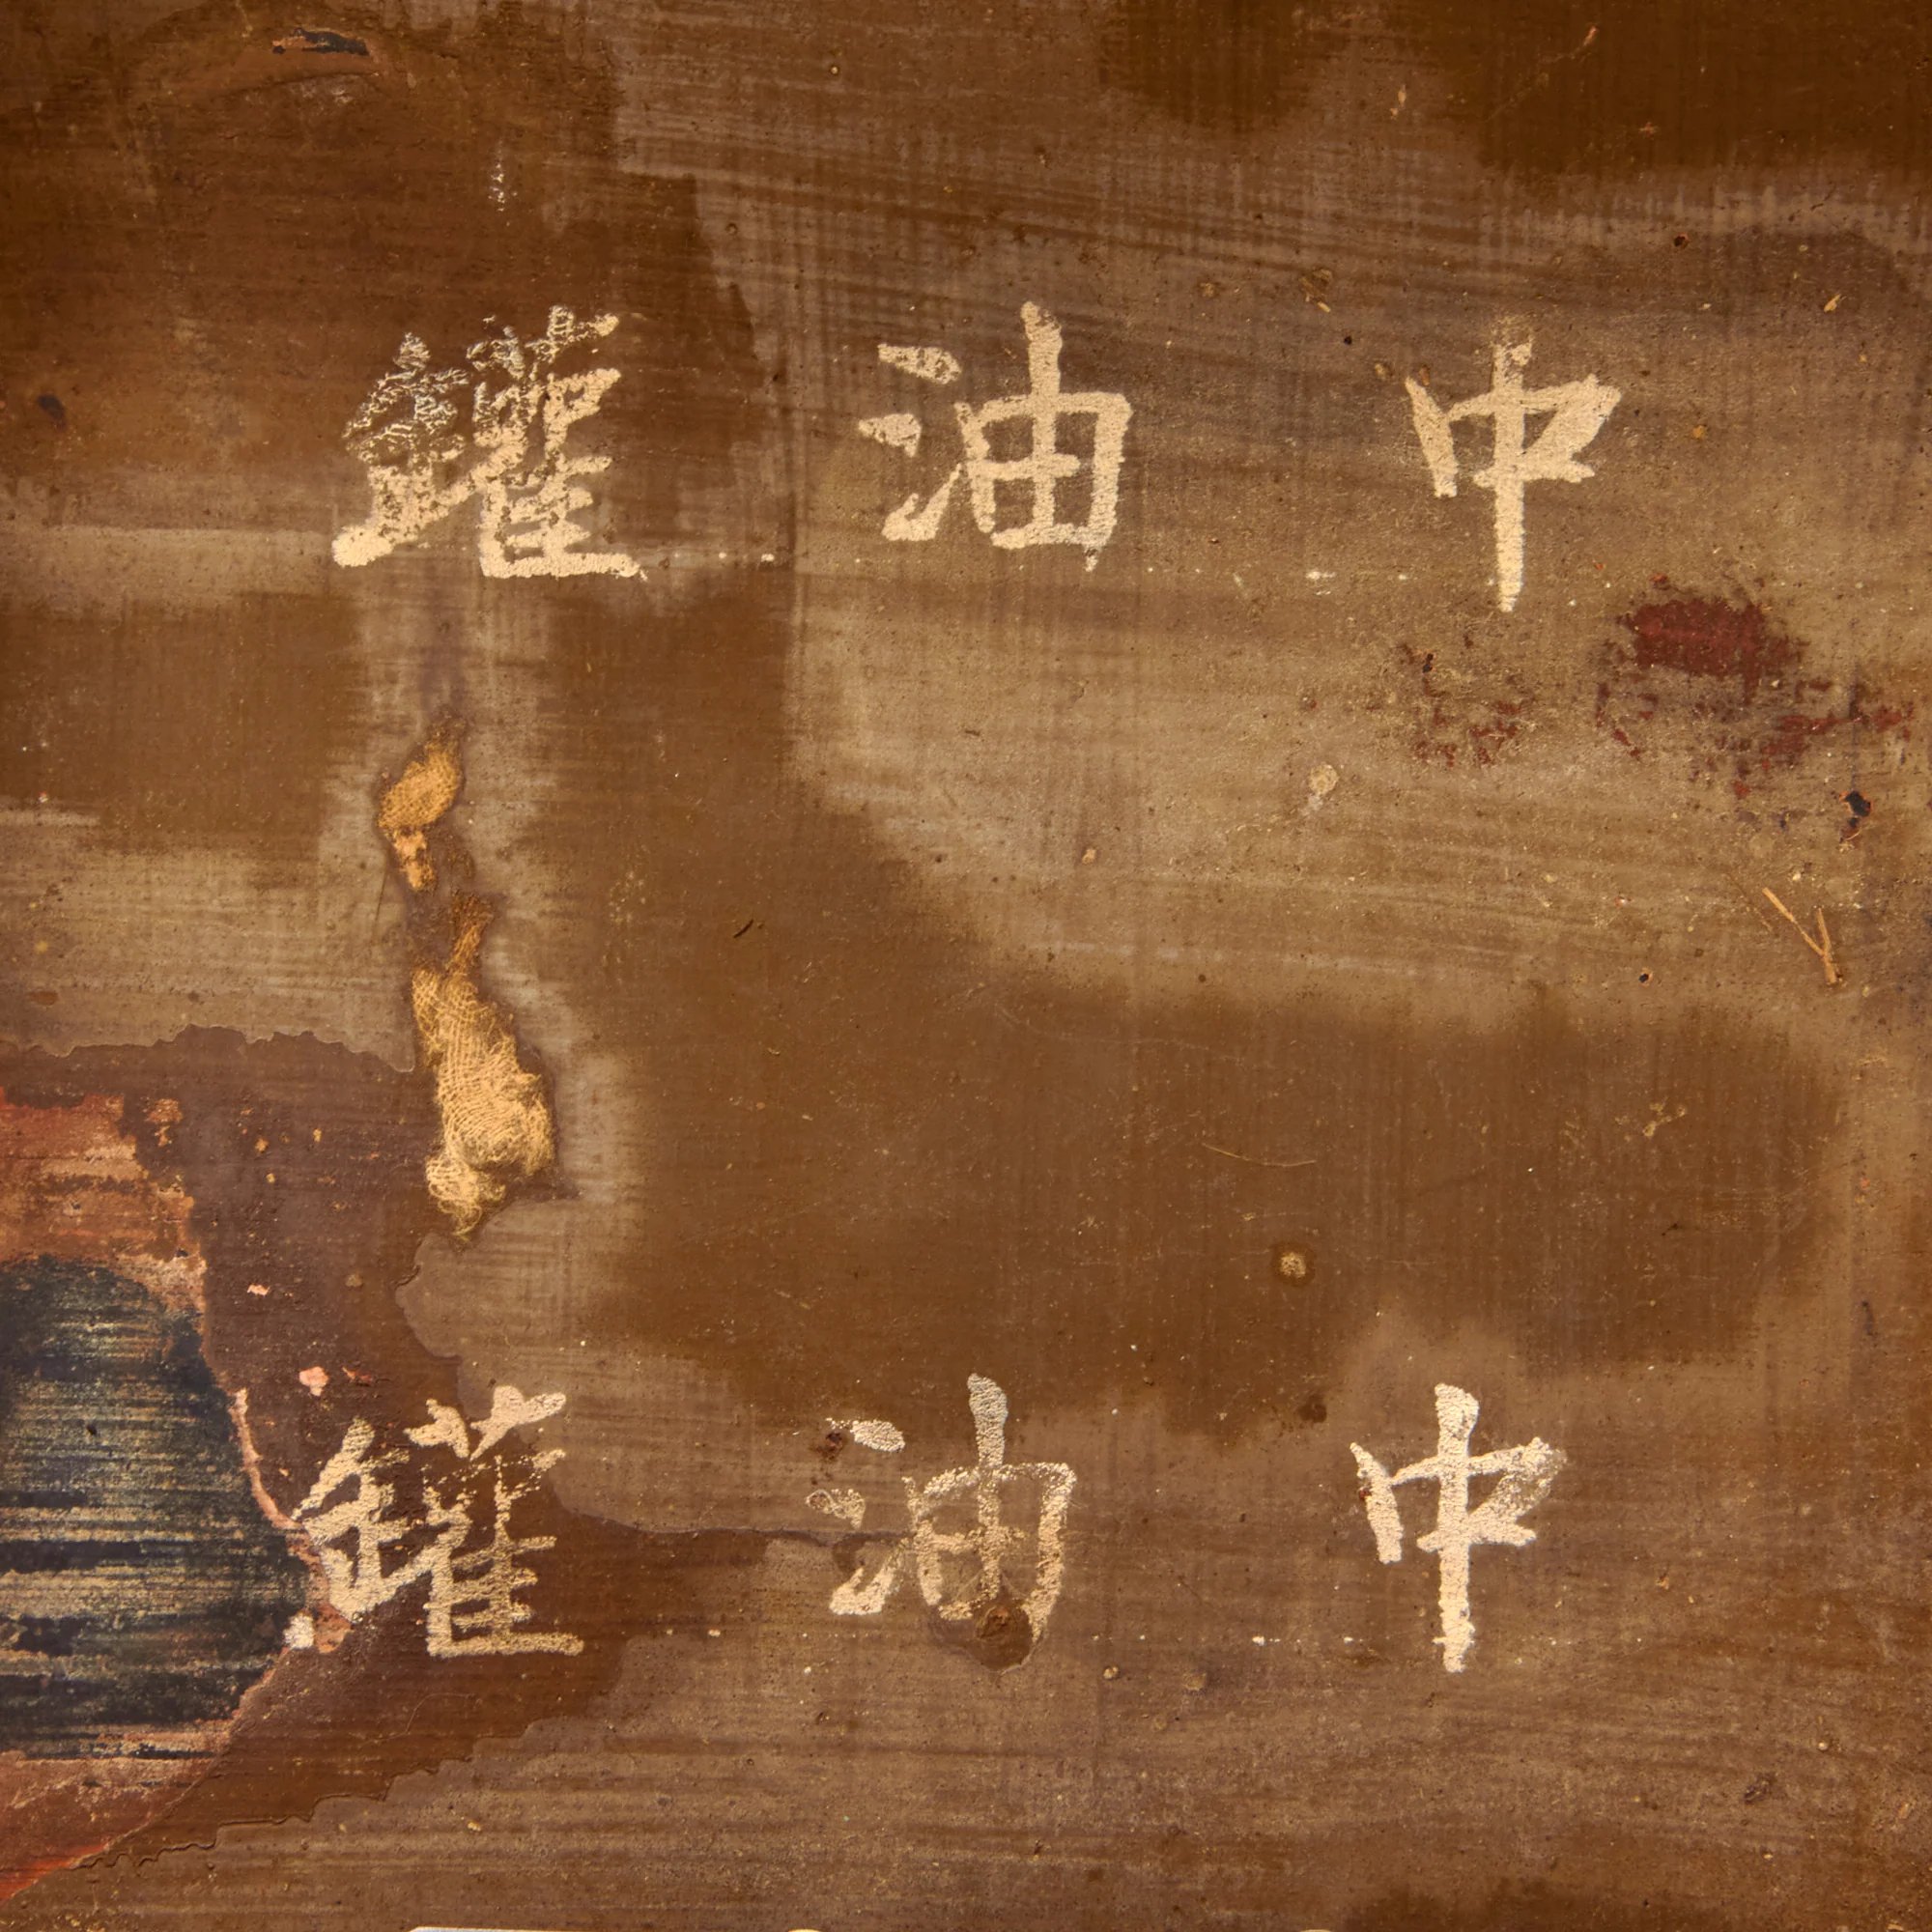 中油罐
中油罐